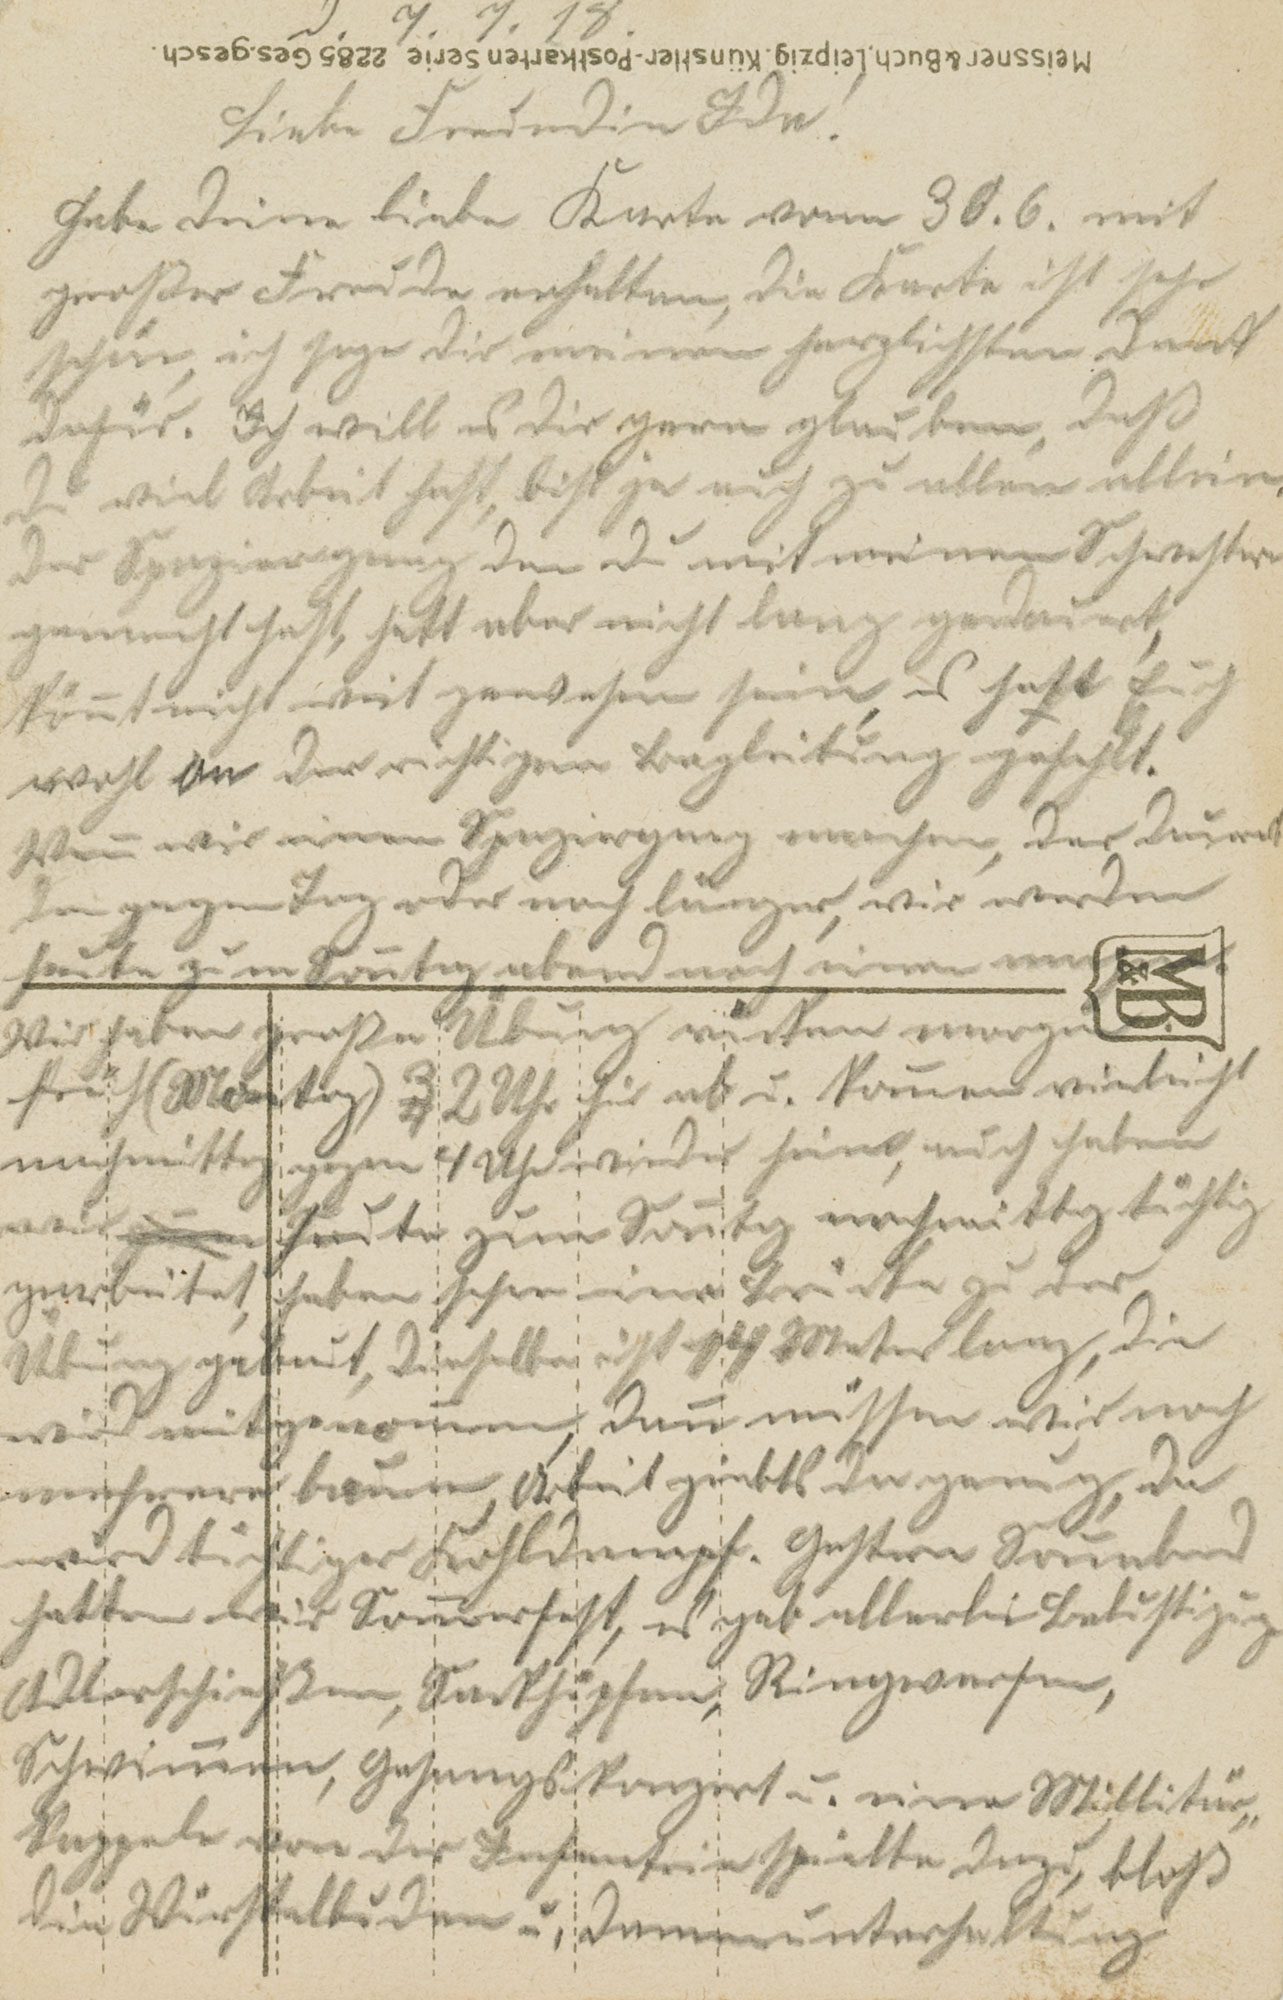 D. 7. 7. 18.
Meissner & Buch, Leipzig. Künstler-Postkarten Serie 2285 Ges. gesch.
Liebe Freundin Ida!
Habe deine liebe Karte vom 30.6. mit
großer Freude erhalten, die Karte ist sehr
schön, ich sage dir meinen herzlichsten Dank
dafür. Ich will es dir gern glauben, daß
du viel Arbeit hast, bist ja auch zu allen allein.
Der Spaziergang den du mit meinen Schwestern
gemacht hast, hatt aber nicht lang gedauert,
könnt nicht weit gewesen sein, es hatt Euch
wohl an der richtigen Begleitung gefehlt.
Wenn wir einen Spaziergang machen, der dauert
den ganzen Tag oder noch länger, wir werden
heute zum Sonntag abend noch einen
M&B
Wir haben große Übung rücken morgen
früh (Montag) 3/4 2 Uhr hir ab u. kommen vieleicht
nachmittag gegen 4 Uhr wieder heim, auch haben
wir heute zum Sonntag nachmittag tüchtig
gearbeitet, haben schon eine Brücke zu der
Übung gebaut, dieselbe ist 14 Meter lang, die
wird mitgenommen, dann müssen wir noch
mehrere bauen, Arbeit giebts da genug, da
wird tüchtiger Kohldampf. Gestern Sonnabend
hatten wir Sommerfest, es gab allerlei Belustigug
Adlerschießen, Sackhüpfen, Ringwerfen,
Schwimmen, Gesangskonzert u. eine Millitär-
Kappele von der Infanterie spielte dazu, bloß
die Würstelbuden u. Damenunterhaltung